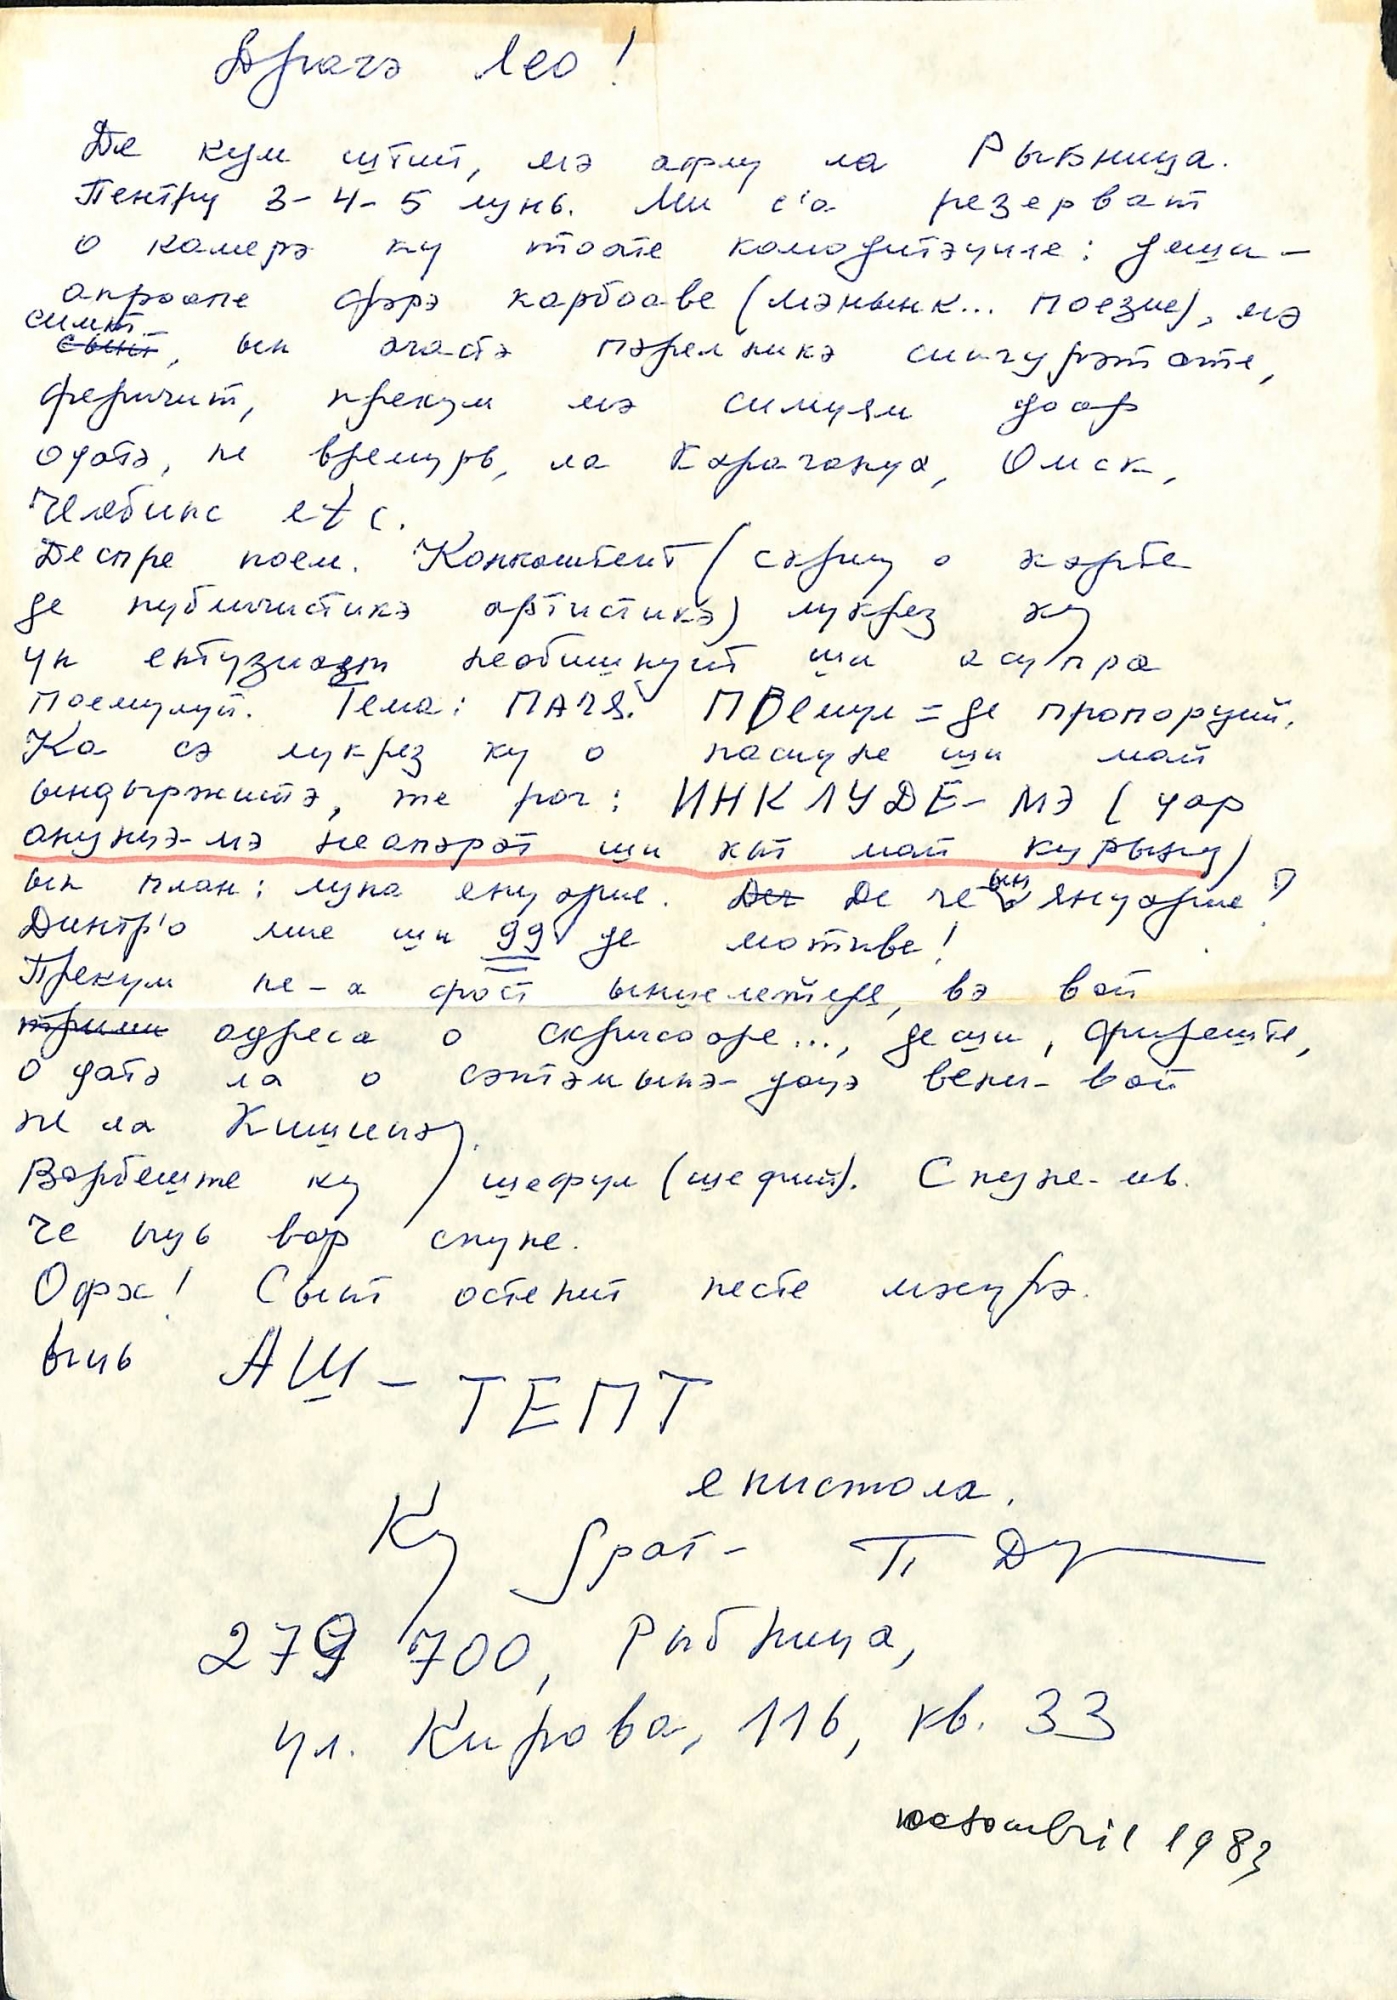 Драгэ Лео!
Де кум штий, мэ афлу ла Рыбница.
Пентру 3-4-5 лунь. Ми с'а резерват
о камерэ ку тоате комодитэциле: деши-
апроапе фэрэ карбоаве (мэнынк... поезие), мэ
симт
сынт, ын ачастэ пэрелникэ сингурэтате,
феричит, прекум мэ симцям доар
одатэ, пе времурь, ла Караганда, Омск,
Челябинс etc.
Деспре поем. Конкомтент (скриу о карте
де публичистикэ артистикэ) лукрез ку
ун ентузиазт необишнуит ши асупра
поемулуй. Тема: ПАЧЯ. ПОемул = де пропорций.
Ка сэ лукрез ку о пасиуне ши май
ындыржитэ, те рог: ИНКЛУДЕ-МЭ (дар
анунцэ-мэ неапэрат ши кыт май курынд)
ын план: луна януарие. Деч Де че ын януарие?
Динтр'о мие ши 99 де мотиве!
Прекум не-а фост ынцелетеря, вэ вой
трими адреса о скрисоаре..., деши, фиреште,
о датэ ла о сэптэмынэ-доуэ вени-вой
пе ла Кишинэу.
Ворбеште ку шефул (шефий). Спуне-мь.
че ыць вор спуне.
Офх! Сынт остенит песте мэсурэ.
Ыць АШ-ТЕПТ
епистола.
Ку драг- П. Ду
279 700, Рыбница,
ул. Кирова, 116, кв. 33
noiembrie 1983